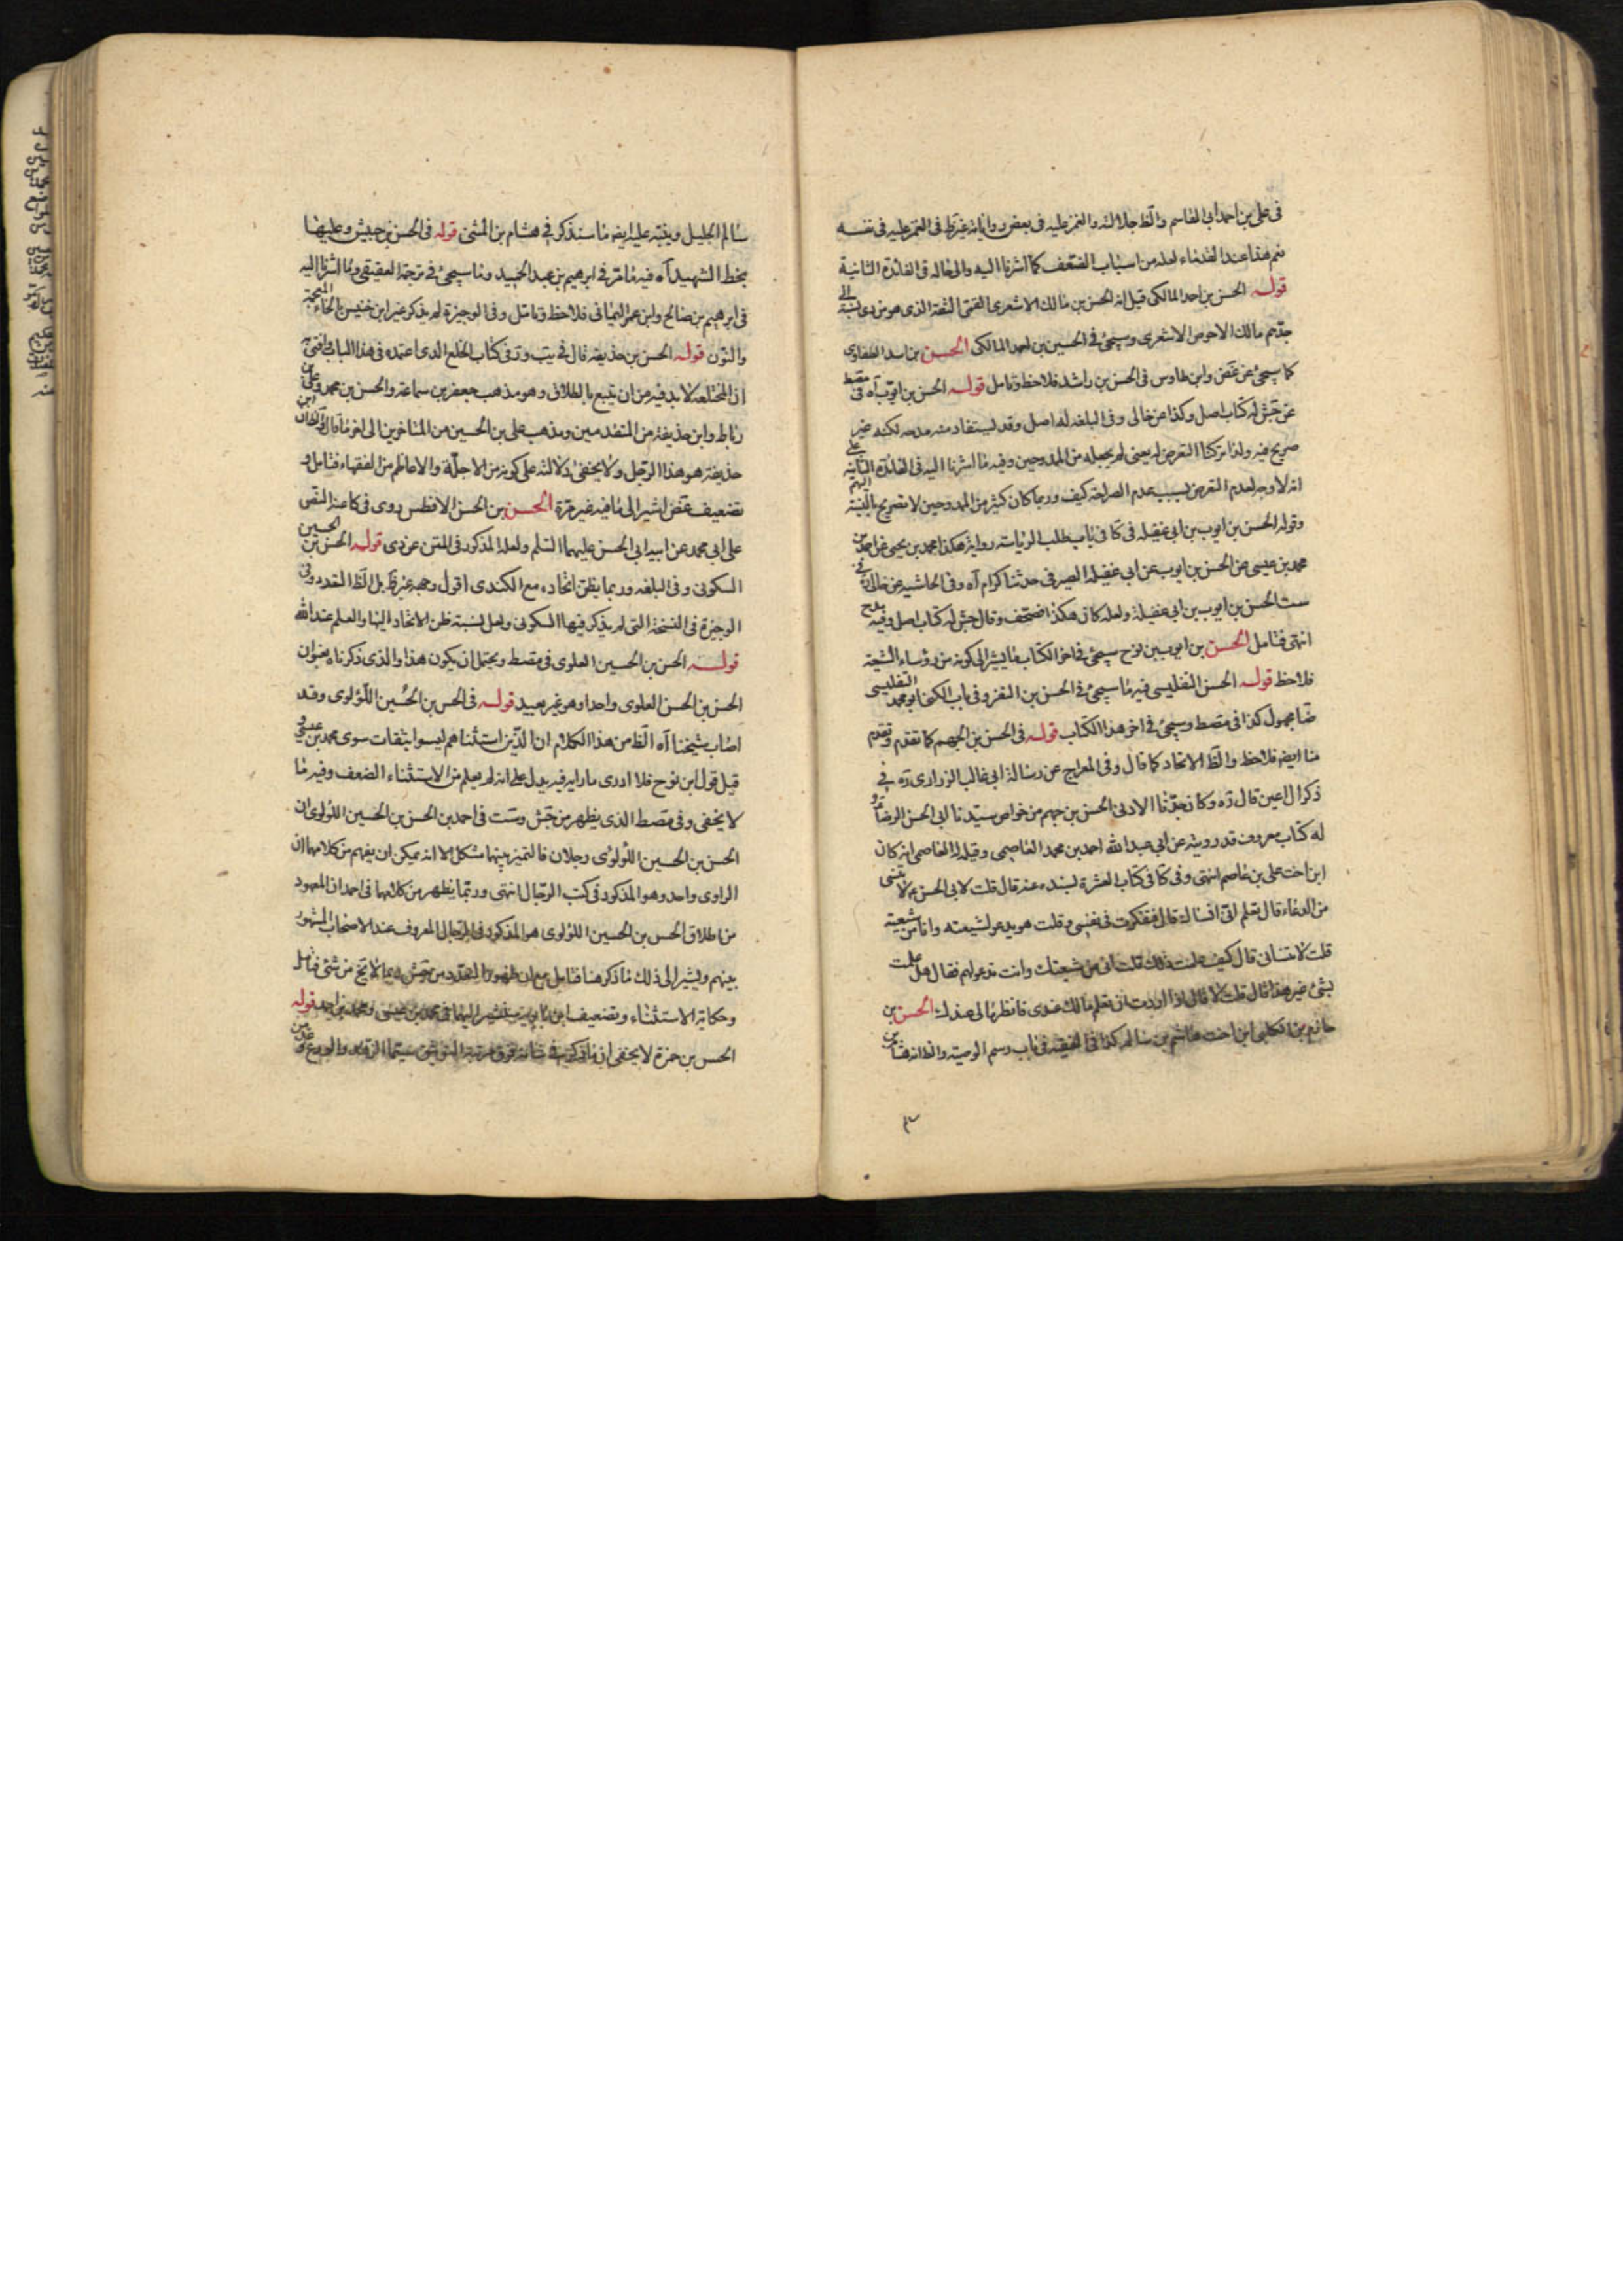 فى على بن احمد ابى القاسم والظ جلالته والغمز عليه فى بعض رواياته غير الغمز عليه فى نفسه
نعم هذا عند القدماء لعله من اسباب الضعف كما اشرنا اليه والى حاله فى الفائدة الثانية
قوله الحسن بن احمد المالكى قيل انه الحسن بن مالك الاشعرى القمى الثقة الذى هو من نسبة الى
جدهم مالك الاحوص الاشعرى وسيجئ فى الحسين بن احمد المالكى الحسن بن اسد الطفاوى
كما سيجئ عن غض وابن طاوس فى الحسن بن راشد فلاحظ وتامل قوله الحسن بن ايوب آه فى مصط
عن جش له كتاب اصل وكذا عن خالى وفى البلغة له اصل وقد يستفاد منه مدحه لكنه غير
صريح فيه ولذا تركنا التعرض له يعنى لم يجعله من الممدوحين وفيه ما اشرنا اليه فى الفائدة الثانية على
انه لا وجه لعدم التعرض بسبب عدم الصراحة كيف وربما كان كثير من الممدوحين لا تصريح بالنسبة اليهم
وقوله الحسن بن ايوب بن ابى عقيله فى كا فى باب طلب الرياسة رواية هكذا محمد بن يحيى عن احمد بن
محمد بن عيسى عن الحسن بن ايوب عن ابى عقيلة الصيرفى حدثنا كرام آه وفى الحاشية عن خالى فى
ست الحسن بن ايوب بن ابى عقيلة ولعله كان هكذا فصحف وقال جش له كتاب اصل وفيه مدح
انتهى فتامل الحسن بن ايوب بن نوح سيجئ فى اخر الكتاب ما يشير الى كونه من رؤساء الشيعة
فلاحظ قوله الحسن التفليسى فيه ما سيجئ فى الحسن بن النضر وفى باب الكنى ابو محمد التفليسى
ضا مجهول كذا فى مصط وسيجئ فى اخر هذا الكتاب قوله فى الحسن بن الجهم كما تقدم وتقدم
منا ايضه فلاحظ والظ الاتحاد كما قال وفى المعراج عن رسالة ابى غالب الزرارى ره فى
ذكر ال اعين قال ره وكان جدنا الادنى الحسن بن جهم من خواص سيدنا ابى الحسن الرضا ع و
له كتاب معروف قد رويته عن ابى عبد الله احمد بن محمد العاصمى وقيل له العاصمى انه كان
ابن اخت على بن عاصم انتهى وفى كا فى كتاب العشرة بسنده عنه قال قلت لابى الحسن ع لا تنسى
من الدعاء قال تعلم انى انساك قال فتفكرت فى نفسى وقلت هو يدعو لشيعته وانا من شيعته
قلت لا تنسانى قال كيف علمت ذلك قلت انى من شيعتك وانت تدعو لهم فقال هل علمت
بشئ غير هذا قال قلت لا قال اذا اردت ان تعلم مالك عندى فانظر مالى عندك الحسن بن
حازم بن الكلبى ابن اخت هاشم بن سالم كذا فى الفقيه فى باب رسم الوصية والظ انه هشام بن
سالم الجليل وينبه عليه ايضه ما سنذكر فى هشام بن المثنى قوله فى الحسن بن حبيش وعليها
بخط الشهيد آه فيه ما مر فى ابرهيم بن عبد الحميد وما سيجئ فى ترجمة العقيقى وما اشرنا اليه
فى ابرهيم بن صالح وابن عمر اليمانى فلاحظ وتامل وفى الوجيزة لم يذكر غير ابن خنيس بالخاء المعجمة
والنون قوله الحسن بن حذيفة قال فى يب وفى كتاب الخلع الذى اعتمده فى هذا الباب وافتى به
ان المختلعة لا بد فيه من ان يتبع بالطلاق وهو مذهب جعفر بن سماعة والحسن بن محمد وعلى بن
رباط وابن حذيفة من المتقدمين ومذهب على بن الحسين من المتاخرين الى اخر ما قال والظ ان ابن
حذيفة هو هذا الرجل ولا يخفى دلالته على كونه من الاجلة والاعاظم من الفقهاء فتامل و
تضعيف غض اشير الى ما فيه غير مرة الحسن بن الحسن الافطس روى فى كا عند النص
على ابى محمد عن ابيه ابى الحسن عليهما السلم ولعله المذكور فى المتن عن دى قوله الحسن بن الحسين
السكونى وفى البلغة وربما يظن اتحاده مع الكندى اقول وجهه غير ظ بل الظ التعدد وفى
الوجيزة فى النسخة التى لم يذكر فيها السكونى ولعل نسبة ظن الاتحاد اليها والعلم عند الله
قوله الحسن بن الحسين العلوى فى مصط ويحتمل ان يكون هذا والذى ذكرناه بعنوان
الحسن بن الحسن العلوى واحدا وهو غير بعيد قوله فى الحسن بن الحسين اللؤلوى وقد
اصاب شيخنا آه الظ من هذا الكلام ان الذين استثناهم ليسوا بثقات سوى محمد بن عيسى و
قيل قول ابن نوح فلا ادرى ما رابه فيه يدل على انه لم يعلم من الاستثناء الضعف وفيه ما
لا يخفى وفى مصط الذى يظهر من جش وست فى احمد بن الحسن بن الحسين اللؤلوى ان
الحسن بن الحسين اللؤلوى رجلان فالتميز بينهما مشكل الا انه يمكن ان يفهم من كلامهما ان
الراوى واحد وهو المذكور فى كتب الرجال انتهى وربما يظهر من كلامهما فى احمد ان المعهود
من اطلاق الحسن بن الحسين اللؤلوى هو المذكور فى الرجال المعروف عند الاصحاب المشهور
بينهم ويشير الى ذلك ما ذكر هنا فتامل مع ان ظهور التعدد من جش ايضا لا يخ من شئ فتامل
وحكاية الاستثناء وتضعيف ابن بابويه سنشير اليهما فى محمد بن عيسى ومحمد بن احمد قوله
الحسن بن حمزة لا يخفى ان ما ذكر فى شانه فوق مرتبة التوثيق سيما الزهد والورع و